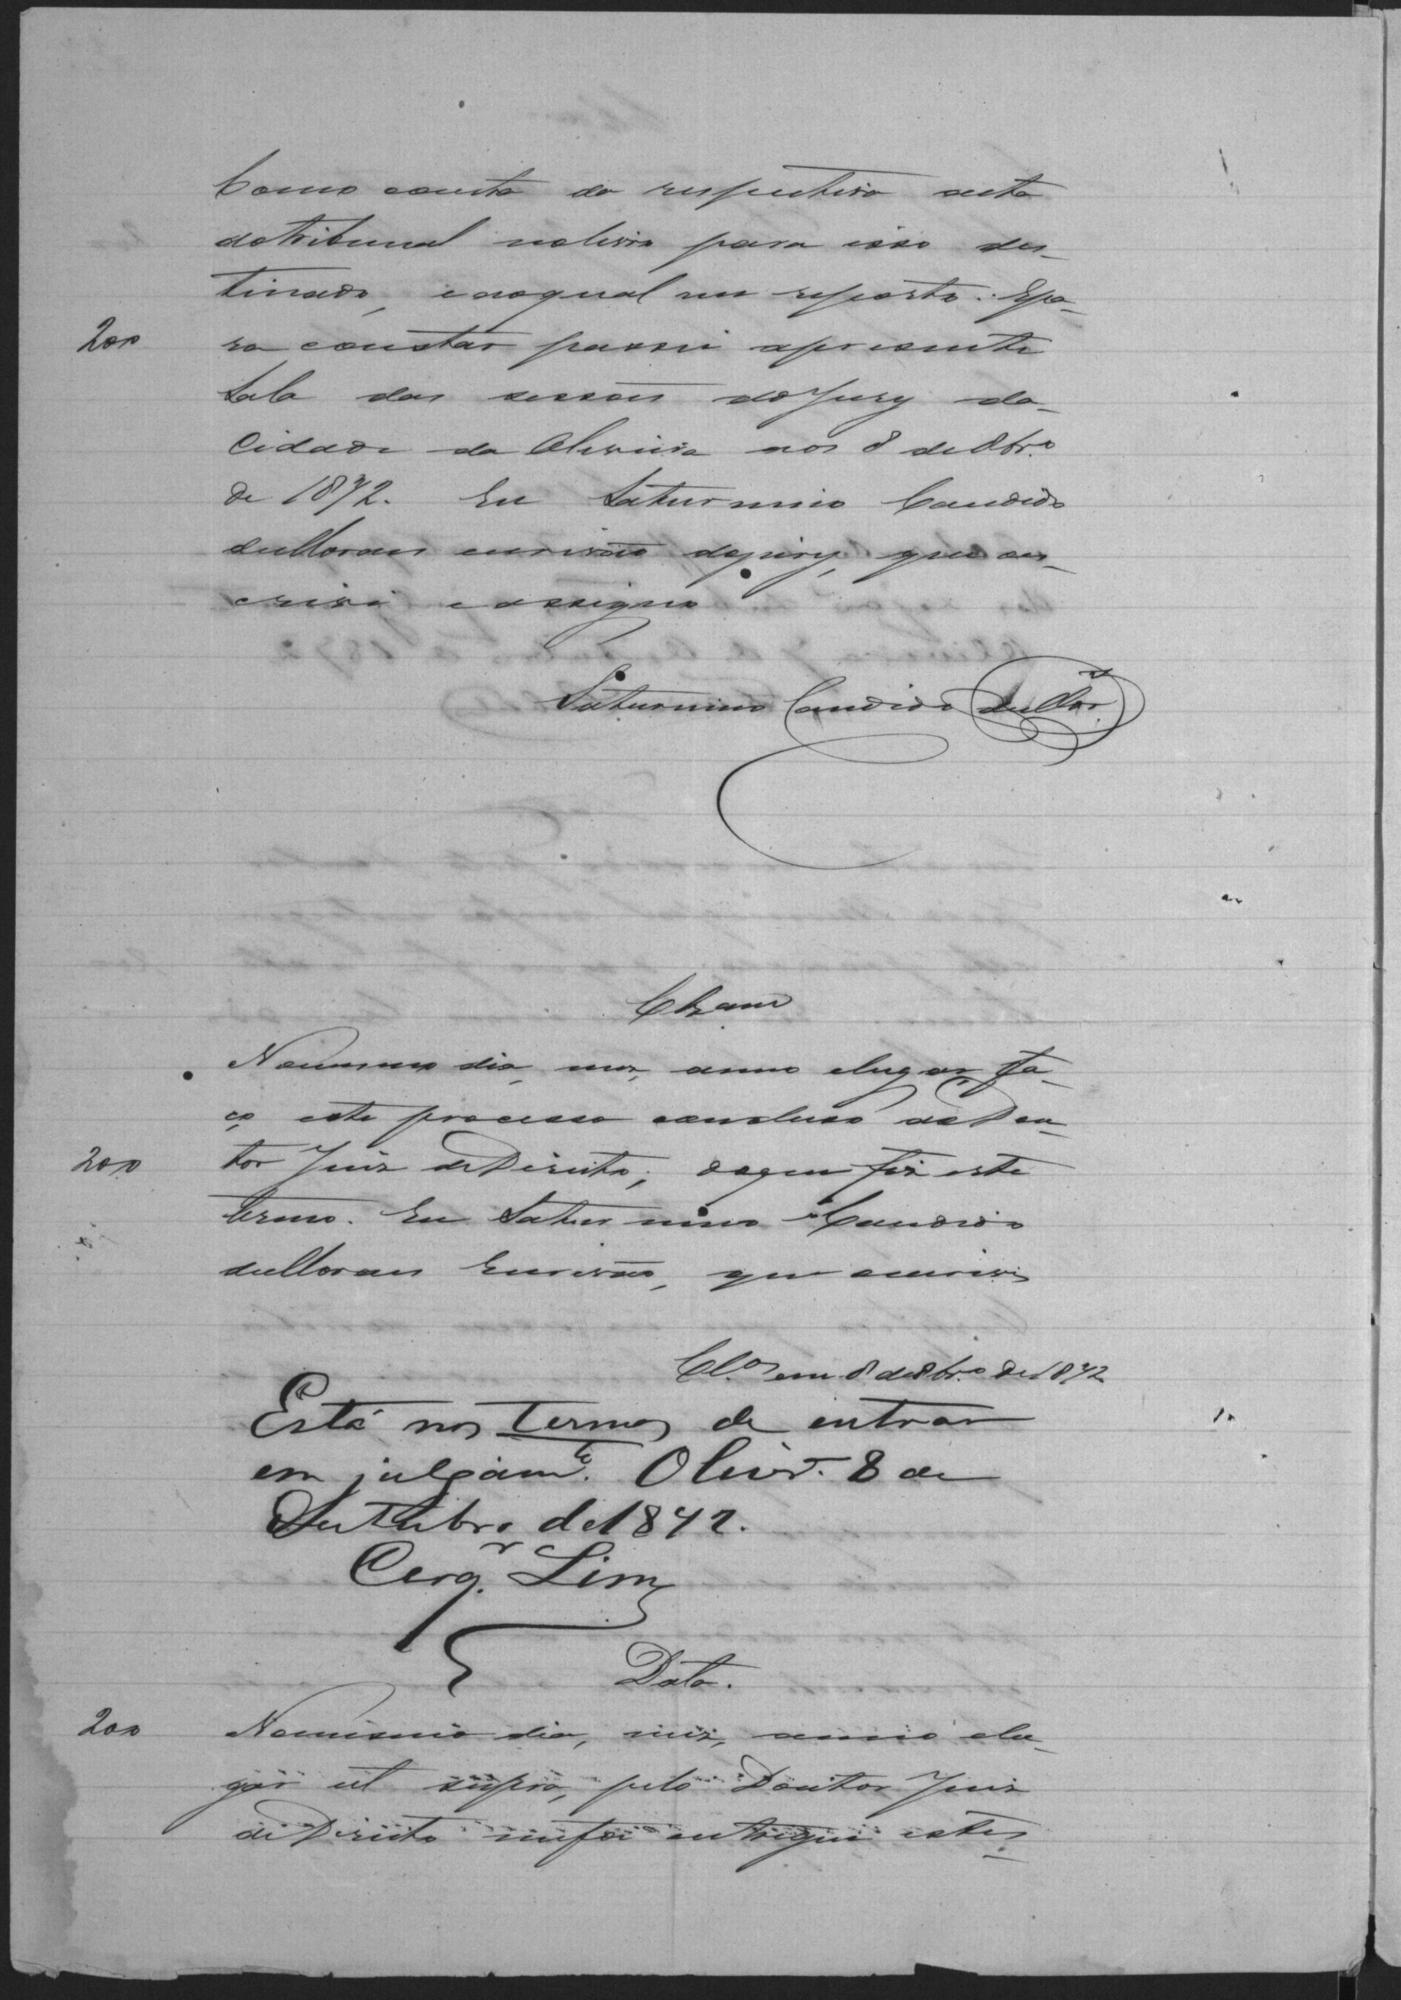 Como consta da respectiva acta
do tribunal no livro para isso des-
tinado, e no qual me reporto. E pa-
200 ra constar passei a presente
Sala das sessões do Jury da
Cidade da Oliveira aos 8 de 8br.º
de 1872. Eu Saturnino Candido
de Moraes escrivão do jury, que es-
crevi e assigno
Saturnino Candido de Mor.
Clsam
No mesmo dia, mez, anno e lugar fa-
ço este processo concluso ao Dou-
200 tor Juiz de Direito; do que fiz este
termo. Eu Saturnino Candido
de Moraes Escrivão, que escrevi
Cl.os em 8 de 8br.º de 1872
Está nos termos de entrar
em julgam.to. Olivr.ª 8 de
Outubro de 1872.
Cerq.r Lima
Data.
200 No mesmo dia, mez, anno e lu-
gar ut supra, pelo Doutor Juiz
de Direito me foi entregue estes